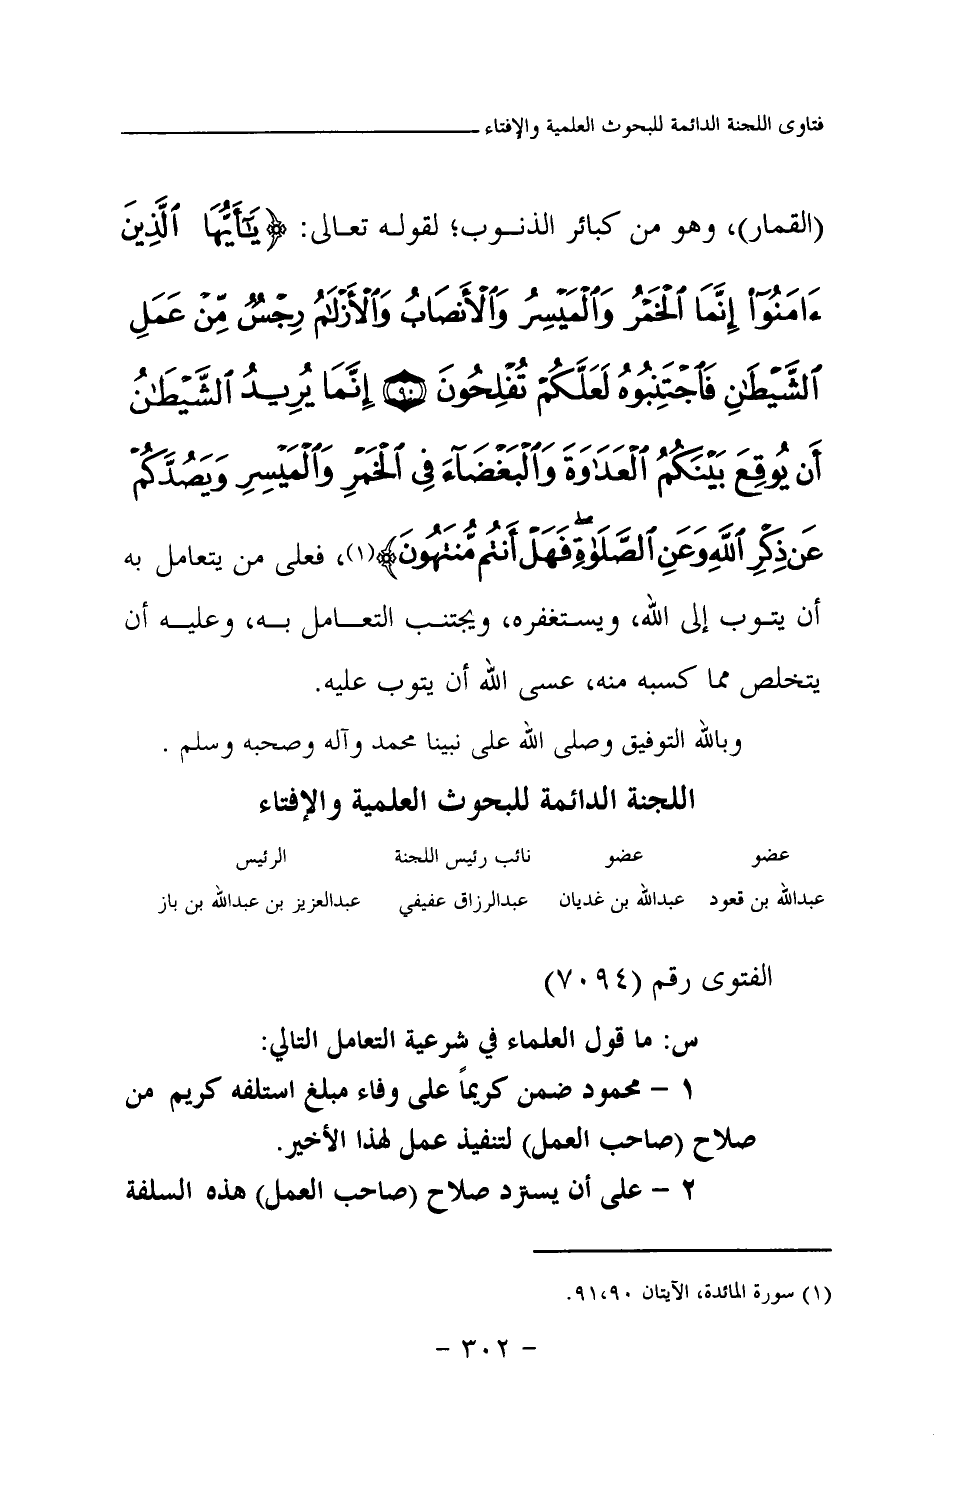 فتاوى اللجنة الدائمة للبحوث العلمية والإفتاء
(القمار)، وهو من كبائر الذنوب؛ لقوله تعالى: ﴿يَٰٓأَيُّهَا ٱلَّذِينَ
ءَامَنُوٓا۟ إِنَّمَا ٱلْخَمْرُ وَٱلْمَيْسِرُ وَٱلْأَنصَابُ وَٱلْأَزْلَٰمُ رِجْسٌ مِّنْ عَمَلِ
ٱلشَّيْطَٰنِ فَٱجْتَنِبُوهُ لَعَلَّكُمْ تُفْلِحُونَ ﴿٩٠﴾ إِنَّمَا يُرِيدُ ٱلشَّيْطَٰنُ
أَن يُوقِعَ بَيْنَكُمُ ٱلْعَدَٰوَةَ وَٱلْبَغْضَآءَ فِى ٱلْخَمْرِ وَٱلْمَيْسِرِ وَيَصُدَّكُمْ
عَن ذِكْرِ ٱللَّهِ وَعَنِ ٱلصَّلَوٰةِ ۖ فَهَلْ أَنتُم مُّنتَهُونَ﴾(١)، فعلى من يتعامل به
أن يتوب إلى الله، ويستغفره، ويجتنب التعامل به، وعليه أن
يتخلص مما كسبه منه، عسى الله أن يتوب عليه.
وبالله التوفيق وصلى الله على نبينا محمد وآله وصحبه وسلم .
اللجنة الدائمة للبحوث العلمية والإفتاء
عضو عضو نائب رئيس اللجنة الرئيس
عبدالله بن قعود عبدالله بن غديان عبدالرزاق عفيفي عبدالعزيز بن عبدالله بن باز
الفتوى رقم (٧٠٩٤)
س: ما قول العلماء في شرعية التعامل التالي:
١ - محمود ضمن كريماً على وفاء مبلغ استلفه كريم من
صلاح (صاحب العمل) لتنفيذ عمل لهذا الأخير.
٢ - على أن يسترد صلاح (صاحب العمل) هذه السلفة
(١) سورة المائدة، الآيتان ٩١،٩٠.
- ٣٠٢ -